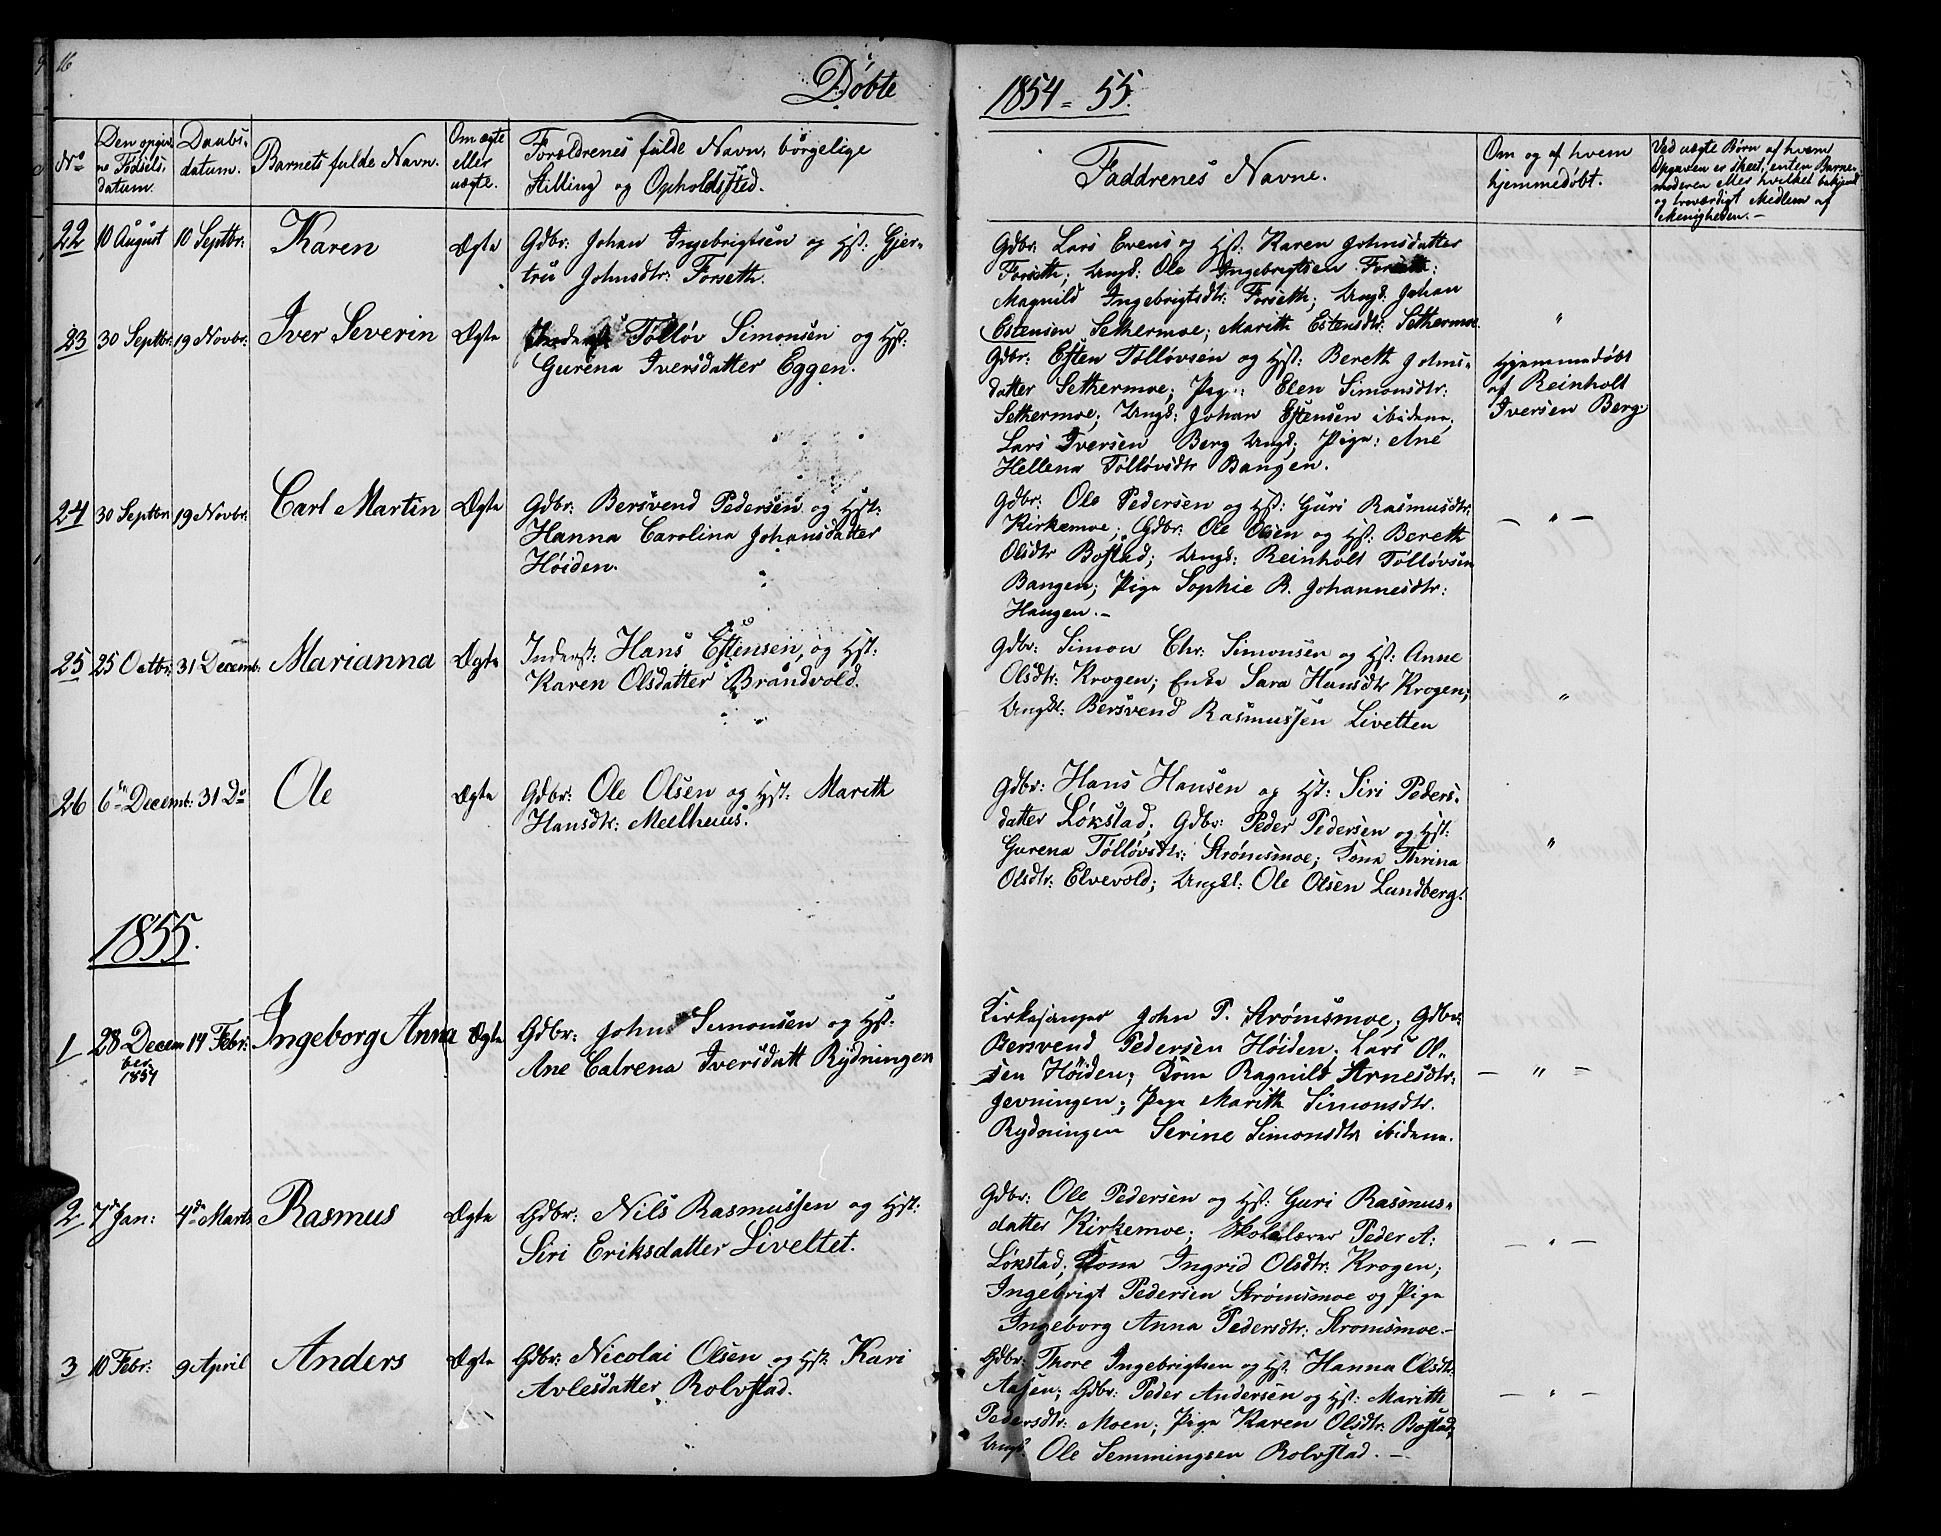 16
Döbte
1854 = 55.
No
Den opgiv
ne Fødsels
datum.
Daabs-
datum.
Barnets fulde Navn.
Om ægte
eller
uægte.
Forældrenes fulde Navn, börgelige
Stilling og Opholdssted.
Faddrenes Navne.
Om og af hvem
hjemmedøbt.
Ved uægte Børn af hvem
Opgaven er skeet, enten Barne-
moderen eller hvilket bekjendt
og troværdigt Medlem af
Menigheden. –
22 10 August 10 Septbr: Karen Ægte
Gdbr: Johan Ingebrigtsen og Hst: Gjer-
tru Johnsdtr: Forseth.
Gdbr: Lars Evens og Hst: Karen Johnsdatter
Forseth; Ungd: Ole Ingebrigtsen Forseth:
Magnild Ingebrigtsdtr: Forseth; Ungd: Johan
Estensen Sethermoe; Marith Estensdtr: Sethermoe.
"
23 30 Septbr: 19 Novbr: Iver Severin Ægte
Tølløv Simonsen og Hst:
Gurena Iversdatter Eggen.
Gdbr: Esten Tølløvsen og Hst: Bereth Johns-
datter Sethermoe; Pige: Elen Simonsdtr:
Sethermoe; Ungd: Johan Estensen ibidem;
Lars Iversen Berg Ungd; Pige: Ane
Hellena Tølløvsdtr Bangen.
Hjemmedøbt
af Reinholt
Iversen Berg.
24 30 Septbr 19 Novbr: Carl Martin Ægte
Gdbr: Bersvend Pedersen og Hst:
Hanna Carolina Johansdatter
Høiden.
Gdbr: Ole Pedersen og Hst: Guri Rasmusdtr:
Kirkemoe; Gdbr: Ole Olsen og Hst: Bereth
Olsdtr Bostad; Ungd: Reinholt Tølløvsen
Bangen; Pige Sophie B. Johannesdtr:
Haugen. –
– " –
25 25 Octbr: 31 Decemb: Marianna Ægte
Inderst: Hans Estensen, og Hst:
Karen Olsdatter Brandvold.
Gdbr: Simon Chr: Simonsen og Hst: Anne
Olsdtr: Krogen; Enke Sara Hansdtr Krogen;
Ungkl: Bersvend Rasmussen Livetten
"
26 6te Decemb: 31 Do Ole Ægte
Gdbr: Ole Olsen og Hst: Marith
Hansdtr: Meelhuus.
Gdbr: Hans Hansen og Hst: Siri Peders-
datter Løkstad; Gdbr: Peder Pedersen og Hst:
Gurena Tølløvsdtr: Strømsmoe; Kona Thrina
Olsdtr: Elvevold; Ungkl: Ole Olsen Lundberg.
"
1855.
1 28 Decem 14 Febr: Ingeborg Anna Ægte
ber
1854
Gdbr: John Simonsen og Hst:
Ane Catrena Iversdatt Rydningen
Kirkesanger John P. Strømsmoe; Gdbr:
Bersvend Pedersen Høiden; Lars Ol-
sen Høiden; Kona Ragnild Arnesdtr:
Jevningen; Pige Marith Simonsdtr.
Rydningen Serine Simonsdtr ibidem.
– " –
2 7de Jan: 4de Marts Rasmus Ægte
Gdbr: Nils Rasmussen og Hst:
Siri Eriksdatter Liveltet.
Gdbr: Ole Pedersen og Hst: Guri Rasmus-
datter Kirkemoe; Skolelærer Peder A:
Løkstad; Kona Ingrid Olsdtr: Krogen;
Ingebrigt Pedersen Strømsmoe og Pige
Ingeborg Anna Pedersdtr: Stromsmoe. –
– " –
3 10 Febr: 9 April Anders Ægte
Gdbr: Nicolai Olsen og Hst: Kari
Avlesdatter Rolvstad.
Gdbr: Thore Ingebrigtsen og Hst: Hanna Olsdtr
Aasen; Gdbr: Peder Andersen og Hst: Marith
Pedersdtr: Moen; Pige Karen Olsdtr: Bostad;
Ungd: Ole Semmingsen Rolvstad. –
– " –